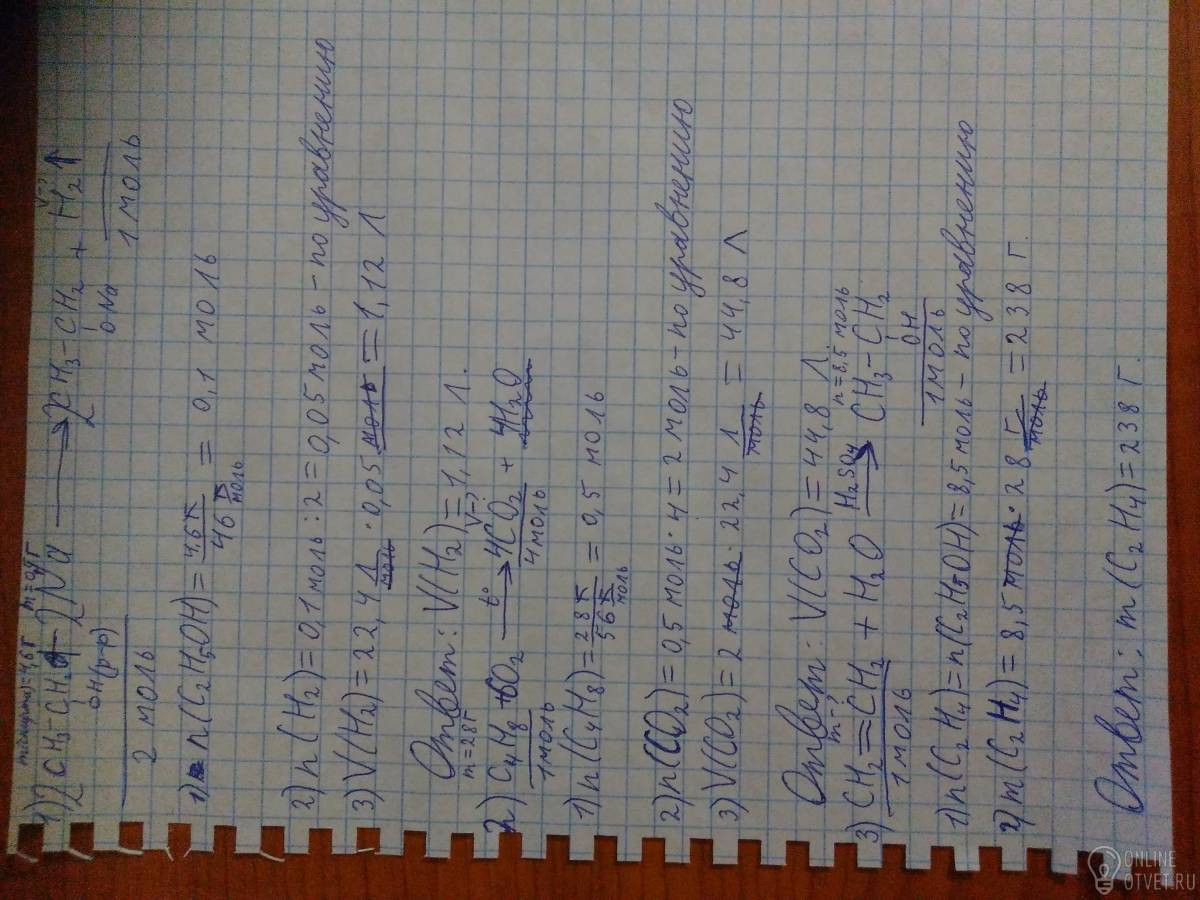 m(спирта)=4,6г m=0,5г
1) 2CH₃-CH₂ + 2Na ⟶ 2CH₃-CH₂ + H₂↑
OH(р-р) ONa V-?
2 моль 1 моль
1) n(C₂H₅OH)= 4,6г / 46 г/моль = 0,1 моль
2) n(H₂)=0,1моль:2=0,05моль-по уравнению
3) V(H₂)=22,4 л/моль·0,05моль=1,12 л
Ответ: V(H₂)=1,12 л.
m=28г V-?
2) C₄H₈ +6O₂ t°⟶ 4CO₂ + 4H₂O
1моль 4моль
1) n(C₄H₈)= 28г / 56 г/моль = 0,5 моль
2) n(CO₂)=0,5моль·4=2моль-по уравнению
3) V(CO₂)=2 моль·22,4 л/моль = 44,8 л
Ответ: V(CO₂)=44,8 л.
m-? n=8,5 моль
3) CH₂=CH₂ + H₂O H₂SO₄⟶ CH₃-CH₂
OH
1моль 1моль
1) n(C₂H₄)=n(C₂H₅OH)=8,5моль-по уравнению
2) m(C₂H₄)=8,5моль·28 г/моль =238 г.
Ответ: m(C₂H₄)=238 г.
ONLINE
OTVET.RU